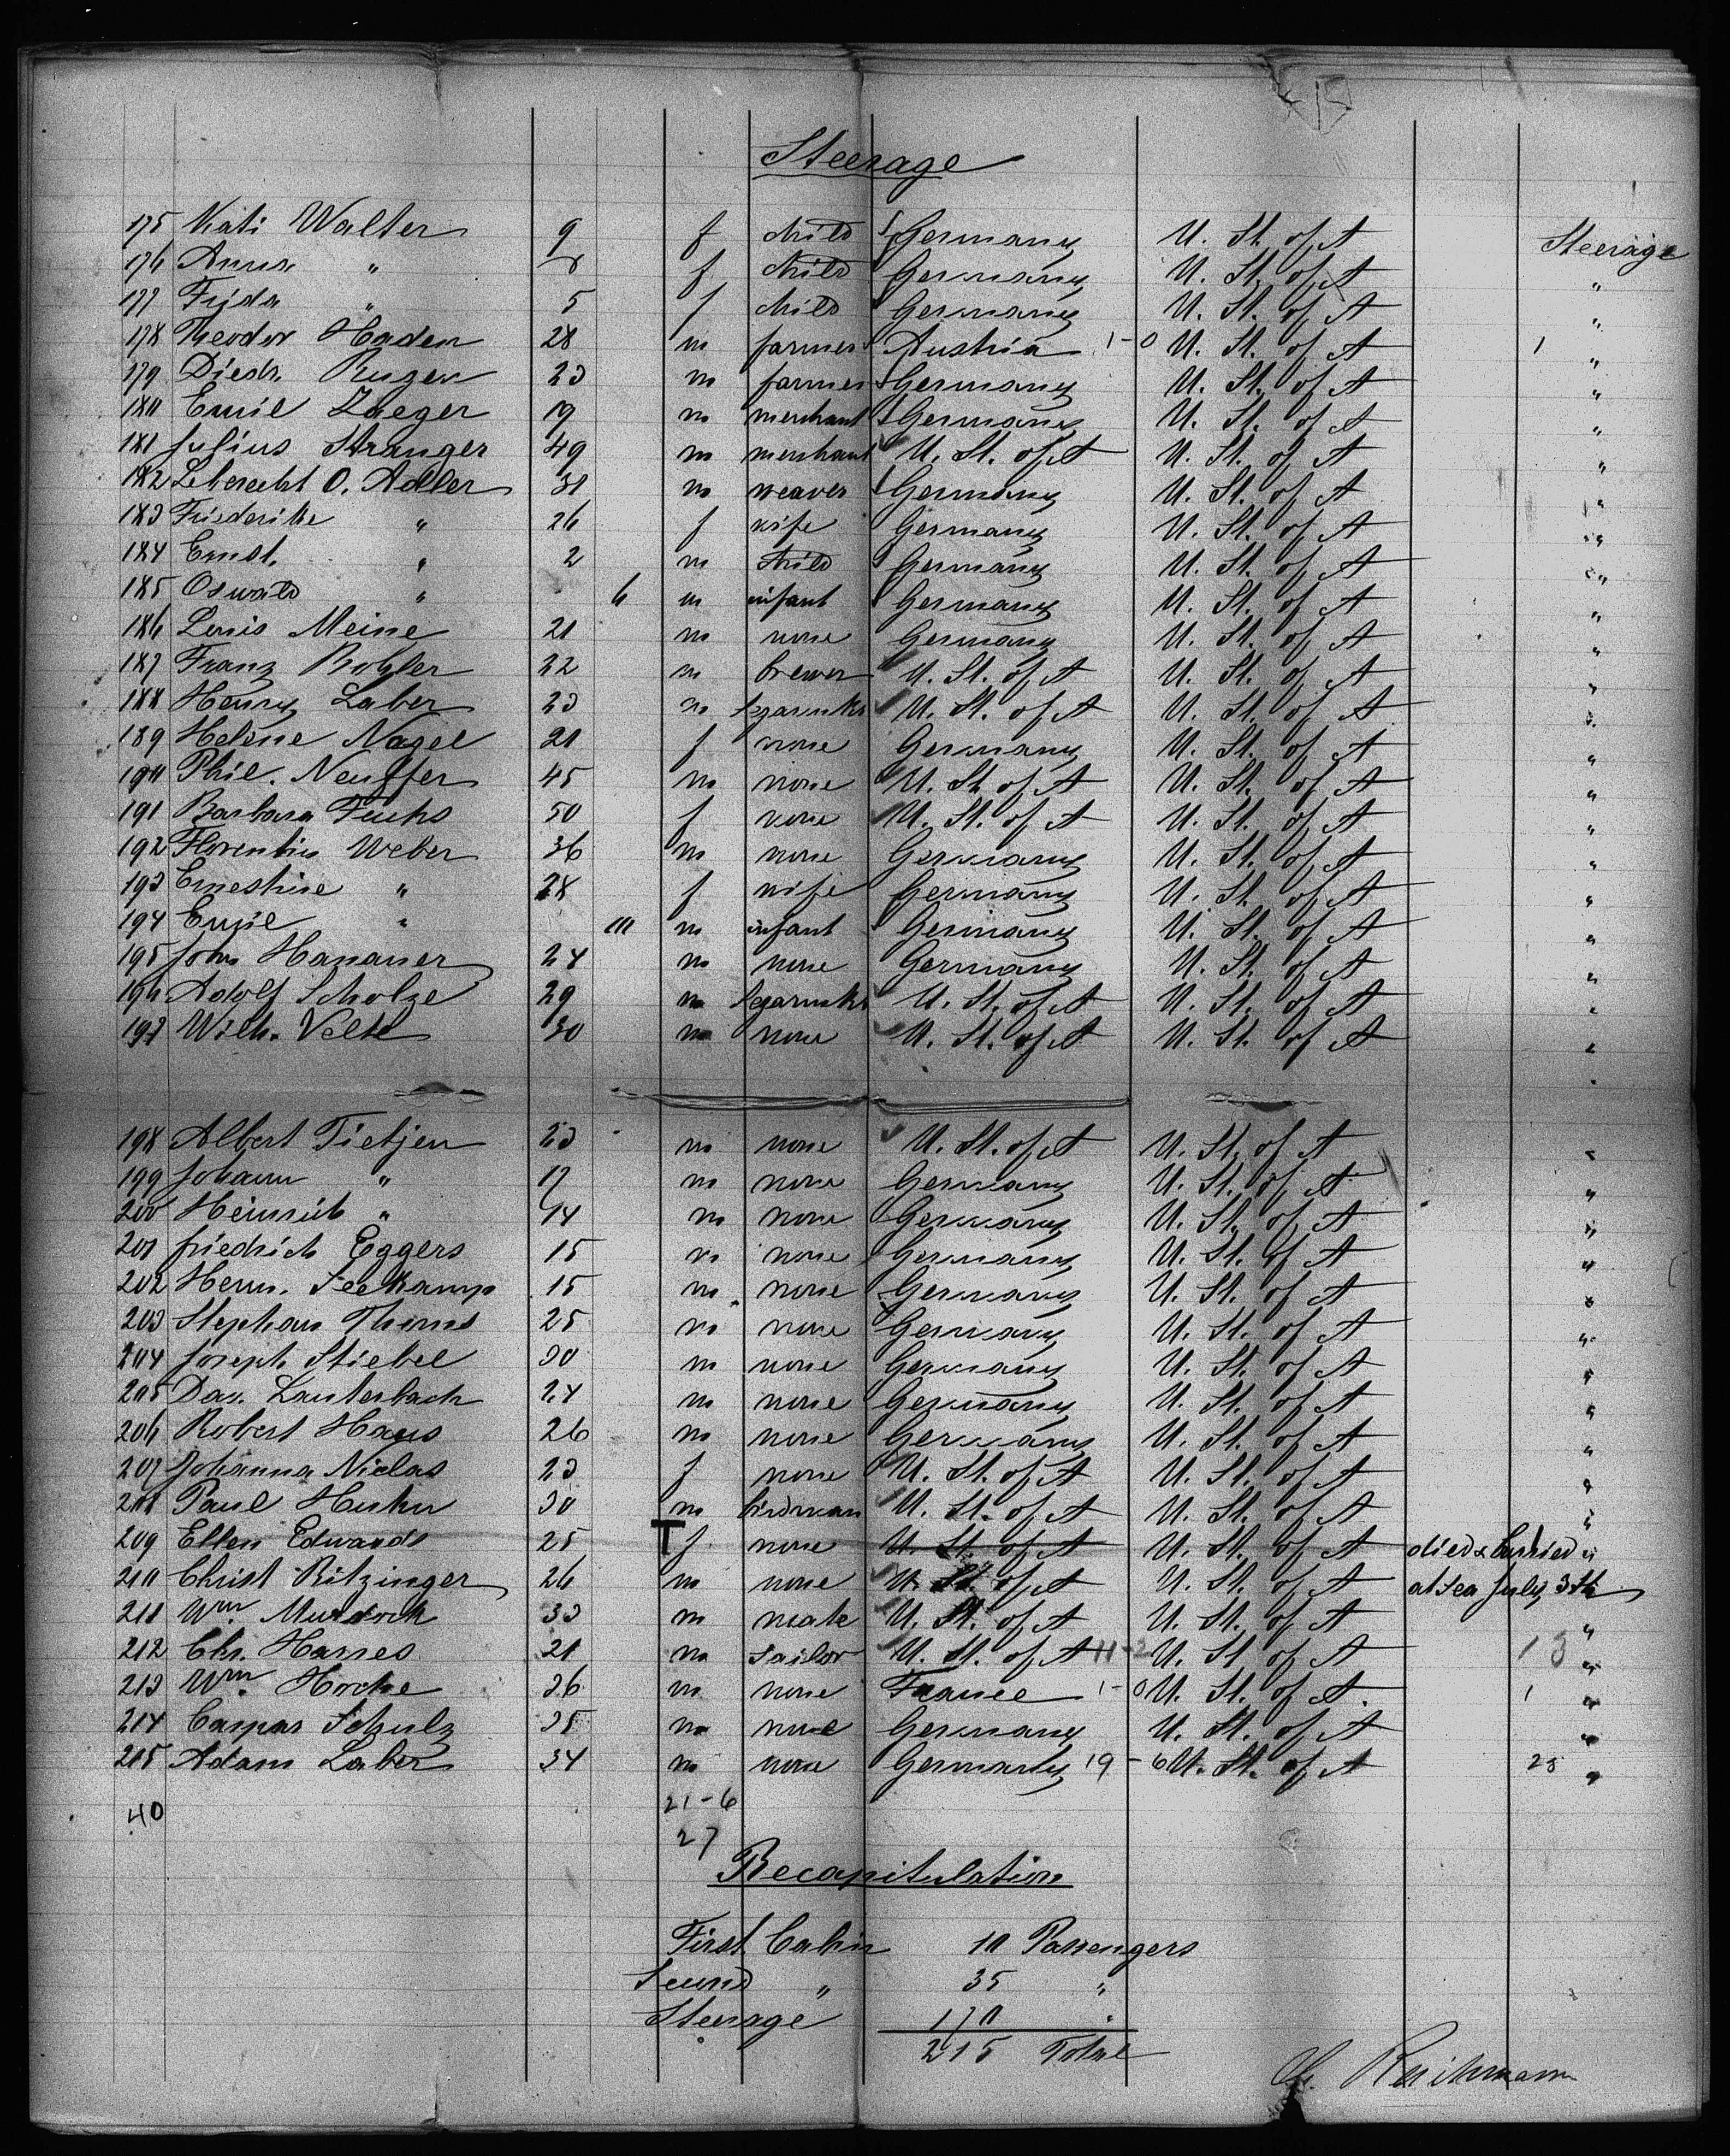 Steerage
175 Kati Walter 9 f child Germany U. St. of A Steerage
176 Anna " 8 f child Germany U. St. of A "
177 Frida " 5 f child Germany U. St. of A "
178 Theodor Haden 28 m farmer Austria 1-0 U. St. of A 1 "
179 Diedr. 23 m farmer Germany U. St. of A "
180 Emil Zaeger 19 m merchant Germany U. St. of A "
181 Julius Stranger 49 m merchant U. St. of A U. St. of A "
182 Leberecht O. Adler 31 m weaver Germany U. St. of A "
183 Friederike " 26 f wife Germany U. St. of A "
184 Ernst " 2 m child Germany U. St. of A "
185 Oswald " 6 m infant Germany U. St. of A "
186 Louis Meine 21 m none Germany U. St. of A "
187 Franz 22 m brewer U. St. of A U. St. of A "
188 Henry Laber 23 m Segarmkr U. St. of A U. St. of A "
189 Helene Nagel 21 f none Germany U. St. of A "
190 Phil. Neuffer 45 m none U. St. of A U. St. of A "
191 Barbara Fuchs 50 f none U. St. of A U. St. of A "
192 Florentin Weber 36 m none Germany U. St. of A "
193 Ernestine " 28 f wife Germany U. St. of A "
194 Emil " 10 m infant Germany U. St. of A "
195 John Hanauer 24 m none Germany U. St. of A "
196 Adolf Scholze 29 m Segarmkr U. St. of A U. St. of A "
197 Wilh. Velte 30 m none U. St. of A U. St. of A "
198 Albert Tietjen 23 m none U. St. of A U. St. of A "
199 Johann " 17 m none Germany U. St. of A "
200 Heinrich " 14 m none Germany U. St. of A "
201 Friedrich Eggers 15 m none Germany U. St. of A "
202 Herm. Seekamp 15 m none Germany U. St. of A "
203 Stephan Thoms 25 m none Germany U. St. of A "
204 Joseph Stiebel 30 m none Germany U. St. of A "
205 Dav. Lauterbach 24 m none Germany U. St. of A "
206 Robert Hays 26 m none Germany U. St. of A "
207 Johanna Niclas 23 f none U. St. of A U. St. of A "
208 Paul Huhn 30 m birdman U. St. of A U. St. of A "
209 Ellen Edwards 25 T f none U. St. of A U. St. of A died & burried "
210 Christ Ritzinger 26 m none U. St. of A U. St. of A at sea July 3th
211 Wm. Murdoch 33 m mate U. St. of A U. St. of A "
212 Chr. Harres 21 m sailor U. St. of A 11-2 U. St. of A 13 "
213 Wm. Hocke 36 m none France 1-0 U. St. of A 1 "
214 Caspar Schulz 35 m none Germany U. St. of A "
215 Adam Laber 34 m none Germany 19-6 U. St. of A 25 "
40 21-6
27
Recapitulation
First Cabin 10 Passengers
Second " 35 "
Steerage 170 "
215 Total